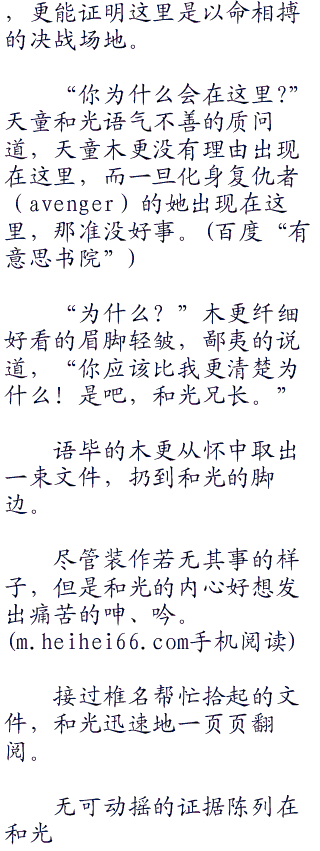 ，更能证明这里是以命相搏
的决战场地。
“你为什么会在这里？”
天童和光语气不善的质问
道，天童木更没有理由出现
在这里，而一旦化身复仇者
（avenger）的她出现在这
里，那准没好事。(百度“有
意思书院”)
“为什么？”木更纤细
好看的眉脚轻皱，鄙夷的说
道，“你应该比我更清楚为
什么！是吧，和光兄长。”
语毕的木更从怀中取出
一束文件，扔到和光的脚
边。
尽管装作若无其事的样
子，但是和光的内心好想发
出痛苦的呻、吟。
(m.heihei66.com手机阅读)
接过椎名帮忙拾起的文
件，和光迅速地一页页翻
阅。
无可动摇的证据陈列在
和光